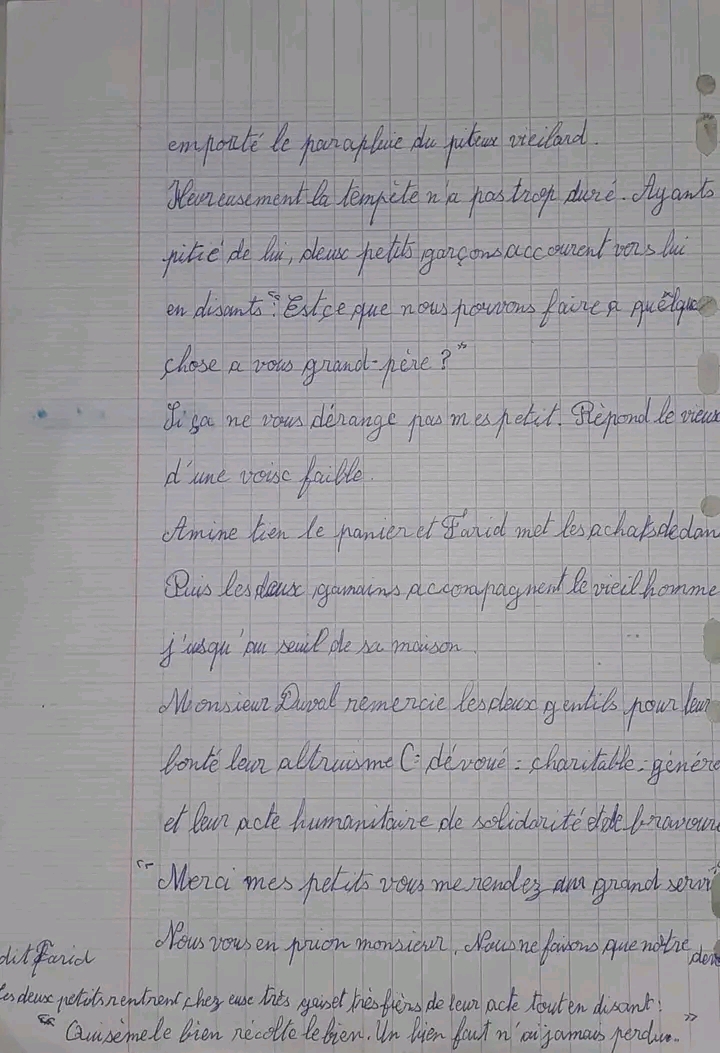 emporté le parapluie du piteux vieilard.
Heureusement la tempète n'a pas trop duré. Ayants
pitié de lui, deux petits garçons accourent vers lui
en disants : "Est ce que nous pouvons faire a quelque
chose a vous grand-père ? "
Si ça ne vous dérange pas mes petit. Répond le vieux
d'une voisc faible.
Amine tien le panier et Farid met les achats dedan
Puis les deux gamains accompagnent le vieil homme
j'usqu'au seuil de sa maison.
Monsieur Duval remercie les deux gentils pour leur
bonté leur altruisme (= dévoué = charitable = génére
et leur acte humanitaire de solidarité et de bravoure
" Merci mes petits vous me rendez un grand servi
Nous vous en prion monsieur. Nous ne faisons que nôtre devo
dit Farid
Les deux petits rentrent chez eux très gais et très fièrs de leur acte tout en disant :
" Qui sème le bien récolte le bien. Un bien fait n'ai jamais perdu. "